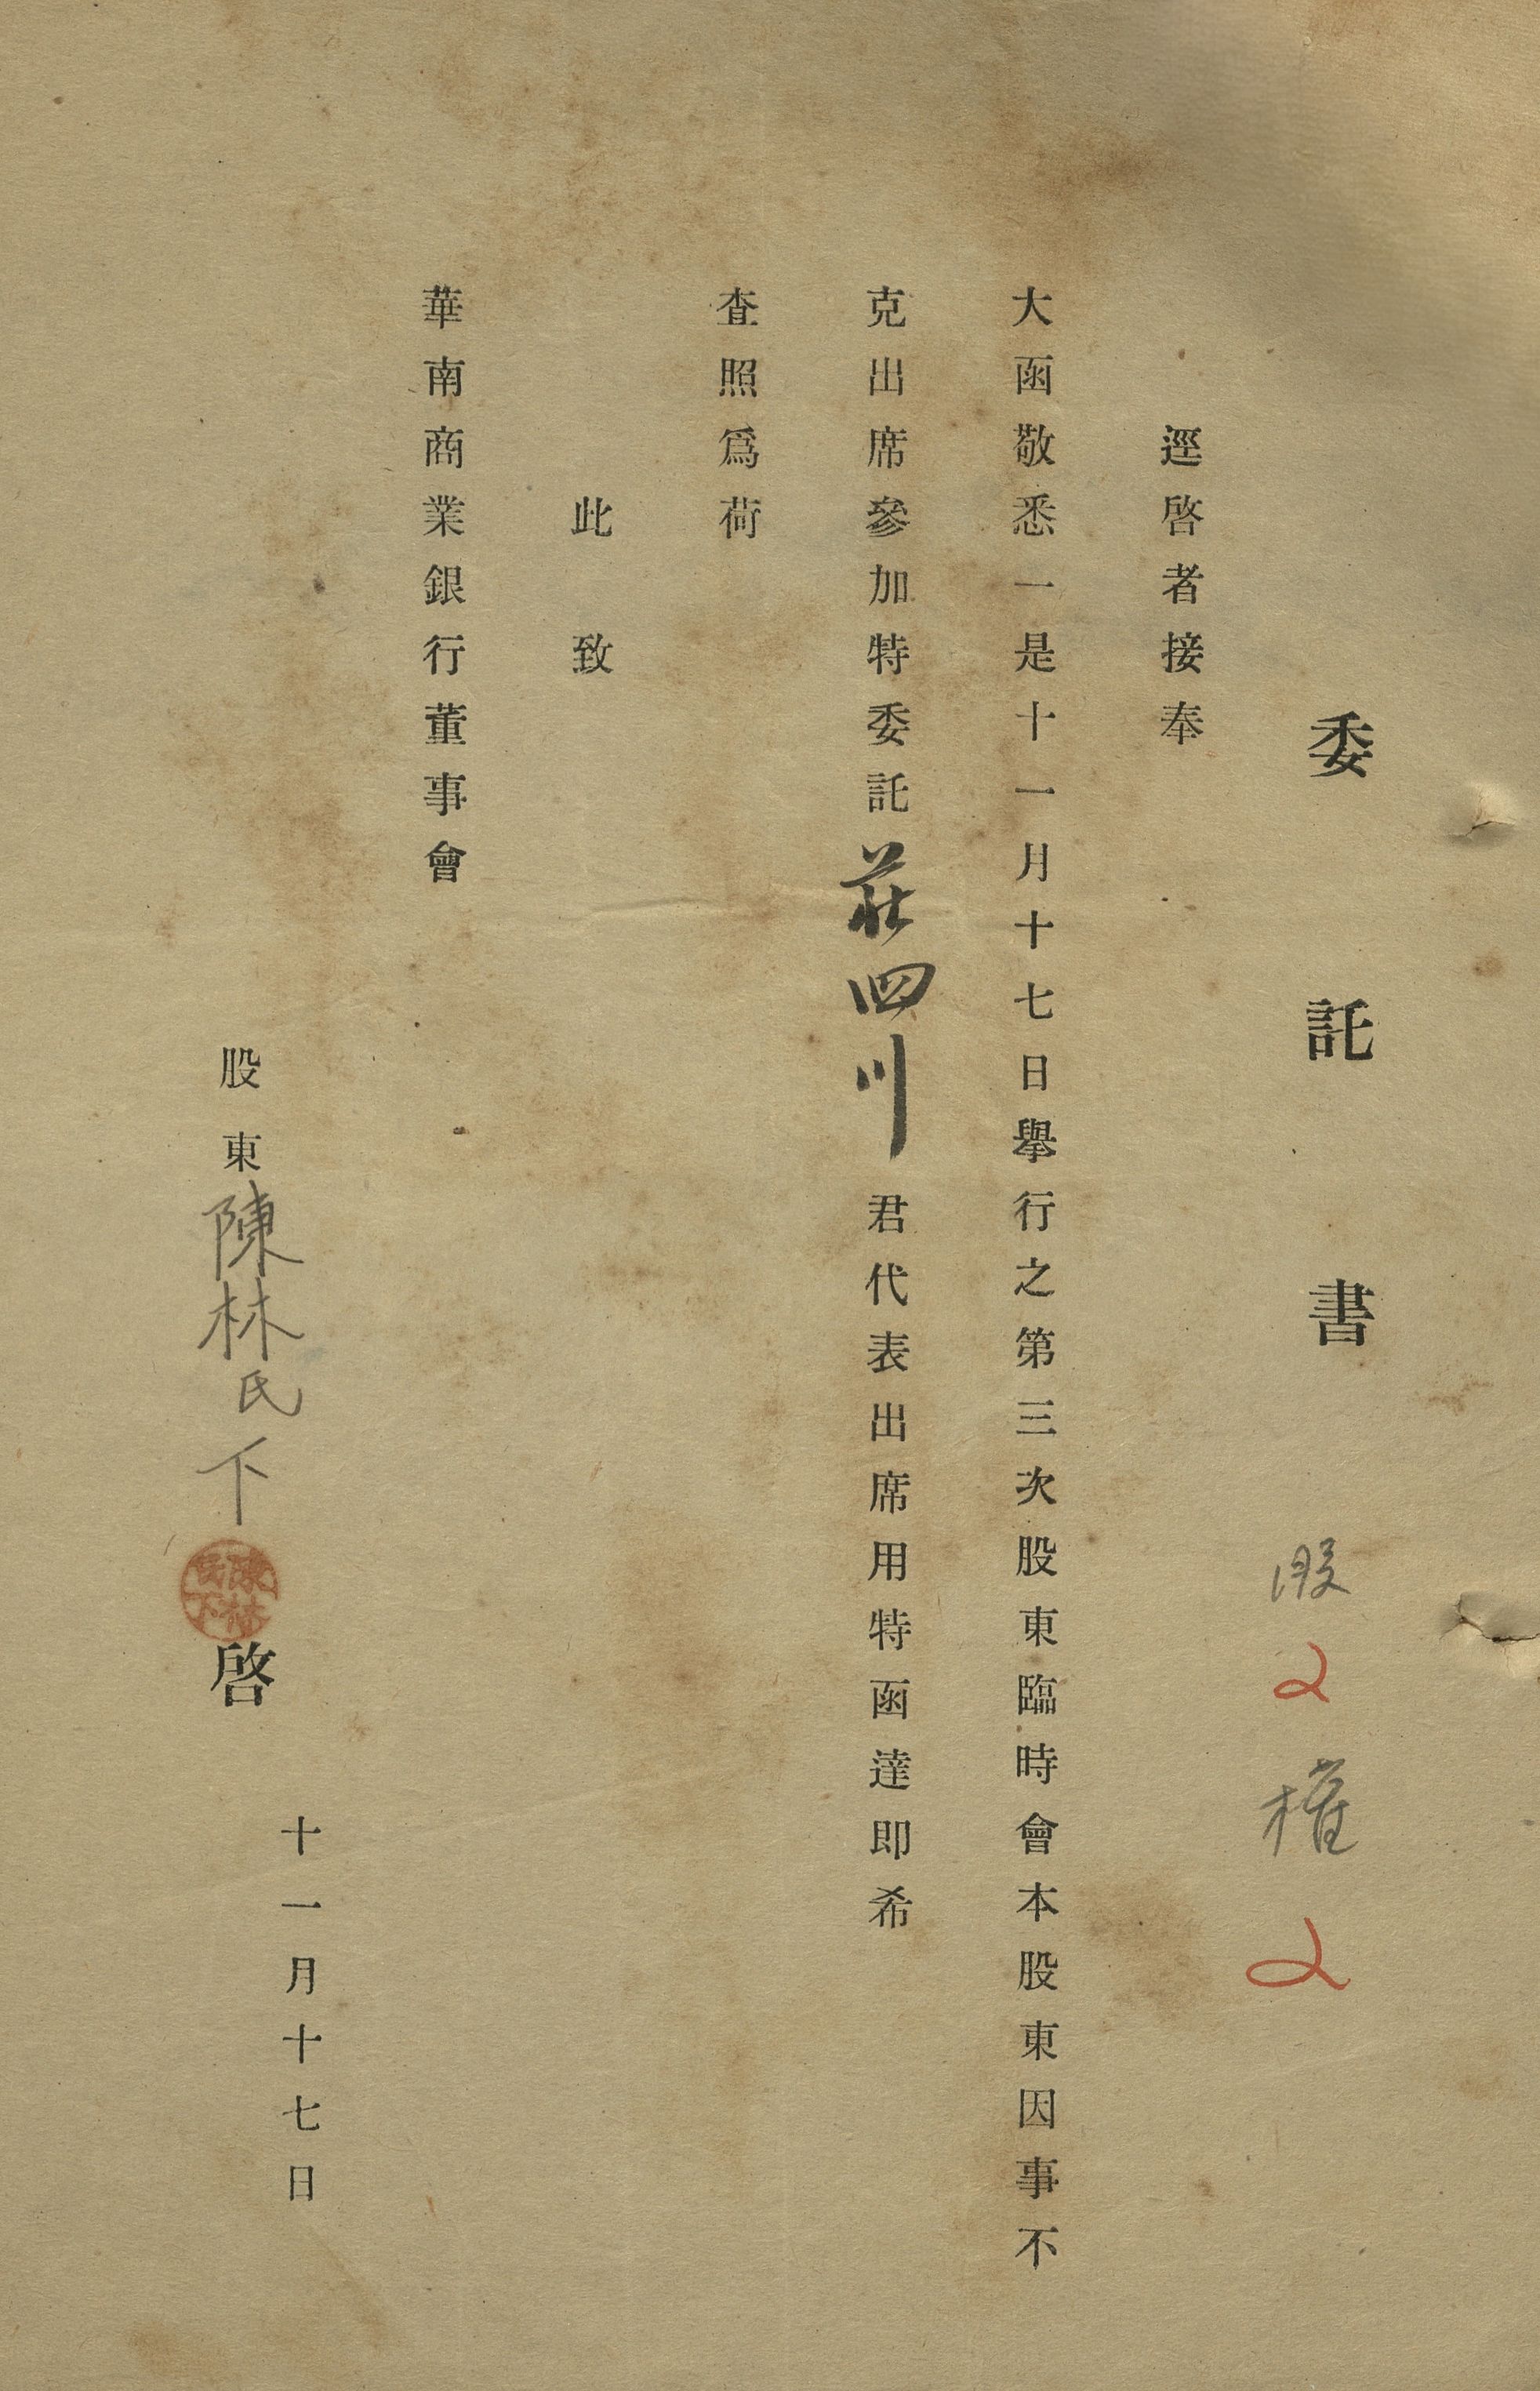 委託書 股 2 權 2
逕啓者接奉
大函敬悉一是十一月十七日舉行之第三次股東臨時會本股東因事不
克出席參加特委託莊四川君代表出席用特函達即希
查照爲荷
此致
華南商業銀行董事會
十一月十七日
股東陳林氏下啓
陳林氏下